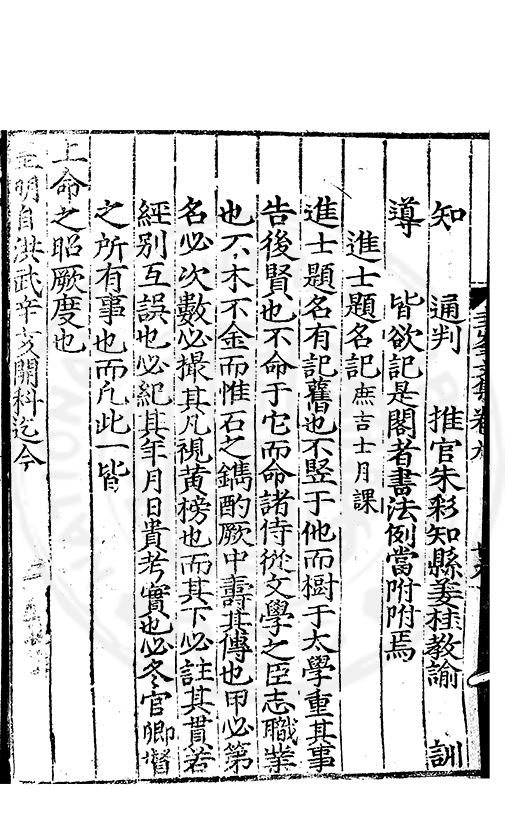 知　通判　推官朱彩知縣姜桂教諭　訓
導　皆欲記是閣者書法例當附附焉
進士題名記庶吉士月課
進士題名有記舊也不竪于他而樹于太學重其事
告後賢也不命于它而命諸侍從文學之臣志職業
也不木不金而惟石之鐫酌厥中壽其傳也甲必第
名必次數必撮其凡視黃榜也而其下必註其貫若
經別互誤也必紀其年月日貴考實也必冬官卿督
之所有事也而凡此一皆
上命之昭厥度也
明自洪武辛亥開科迄今